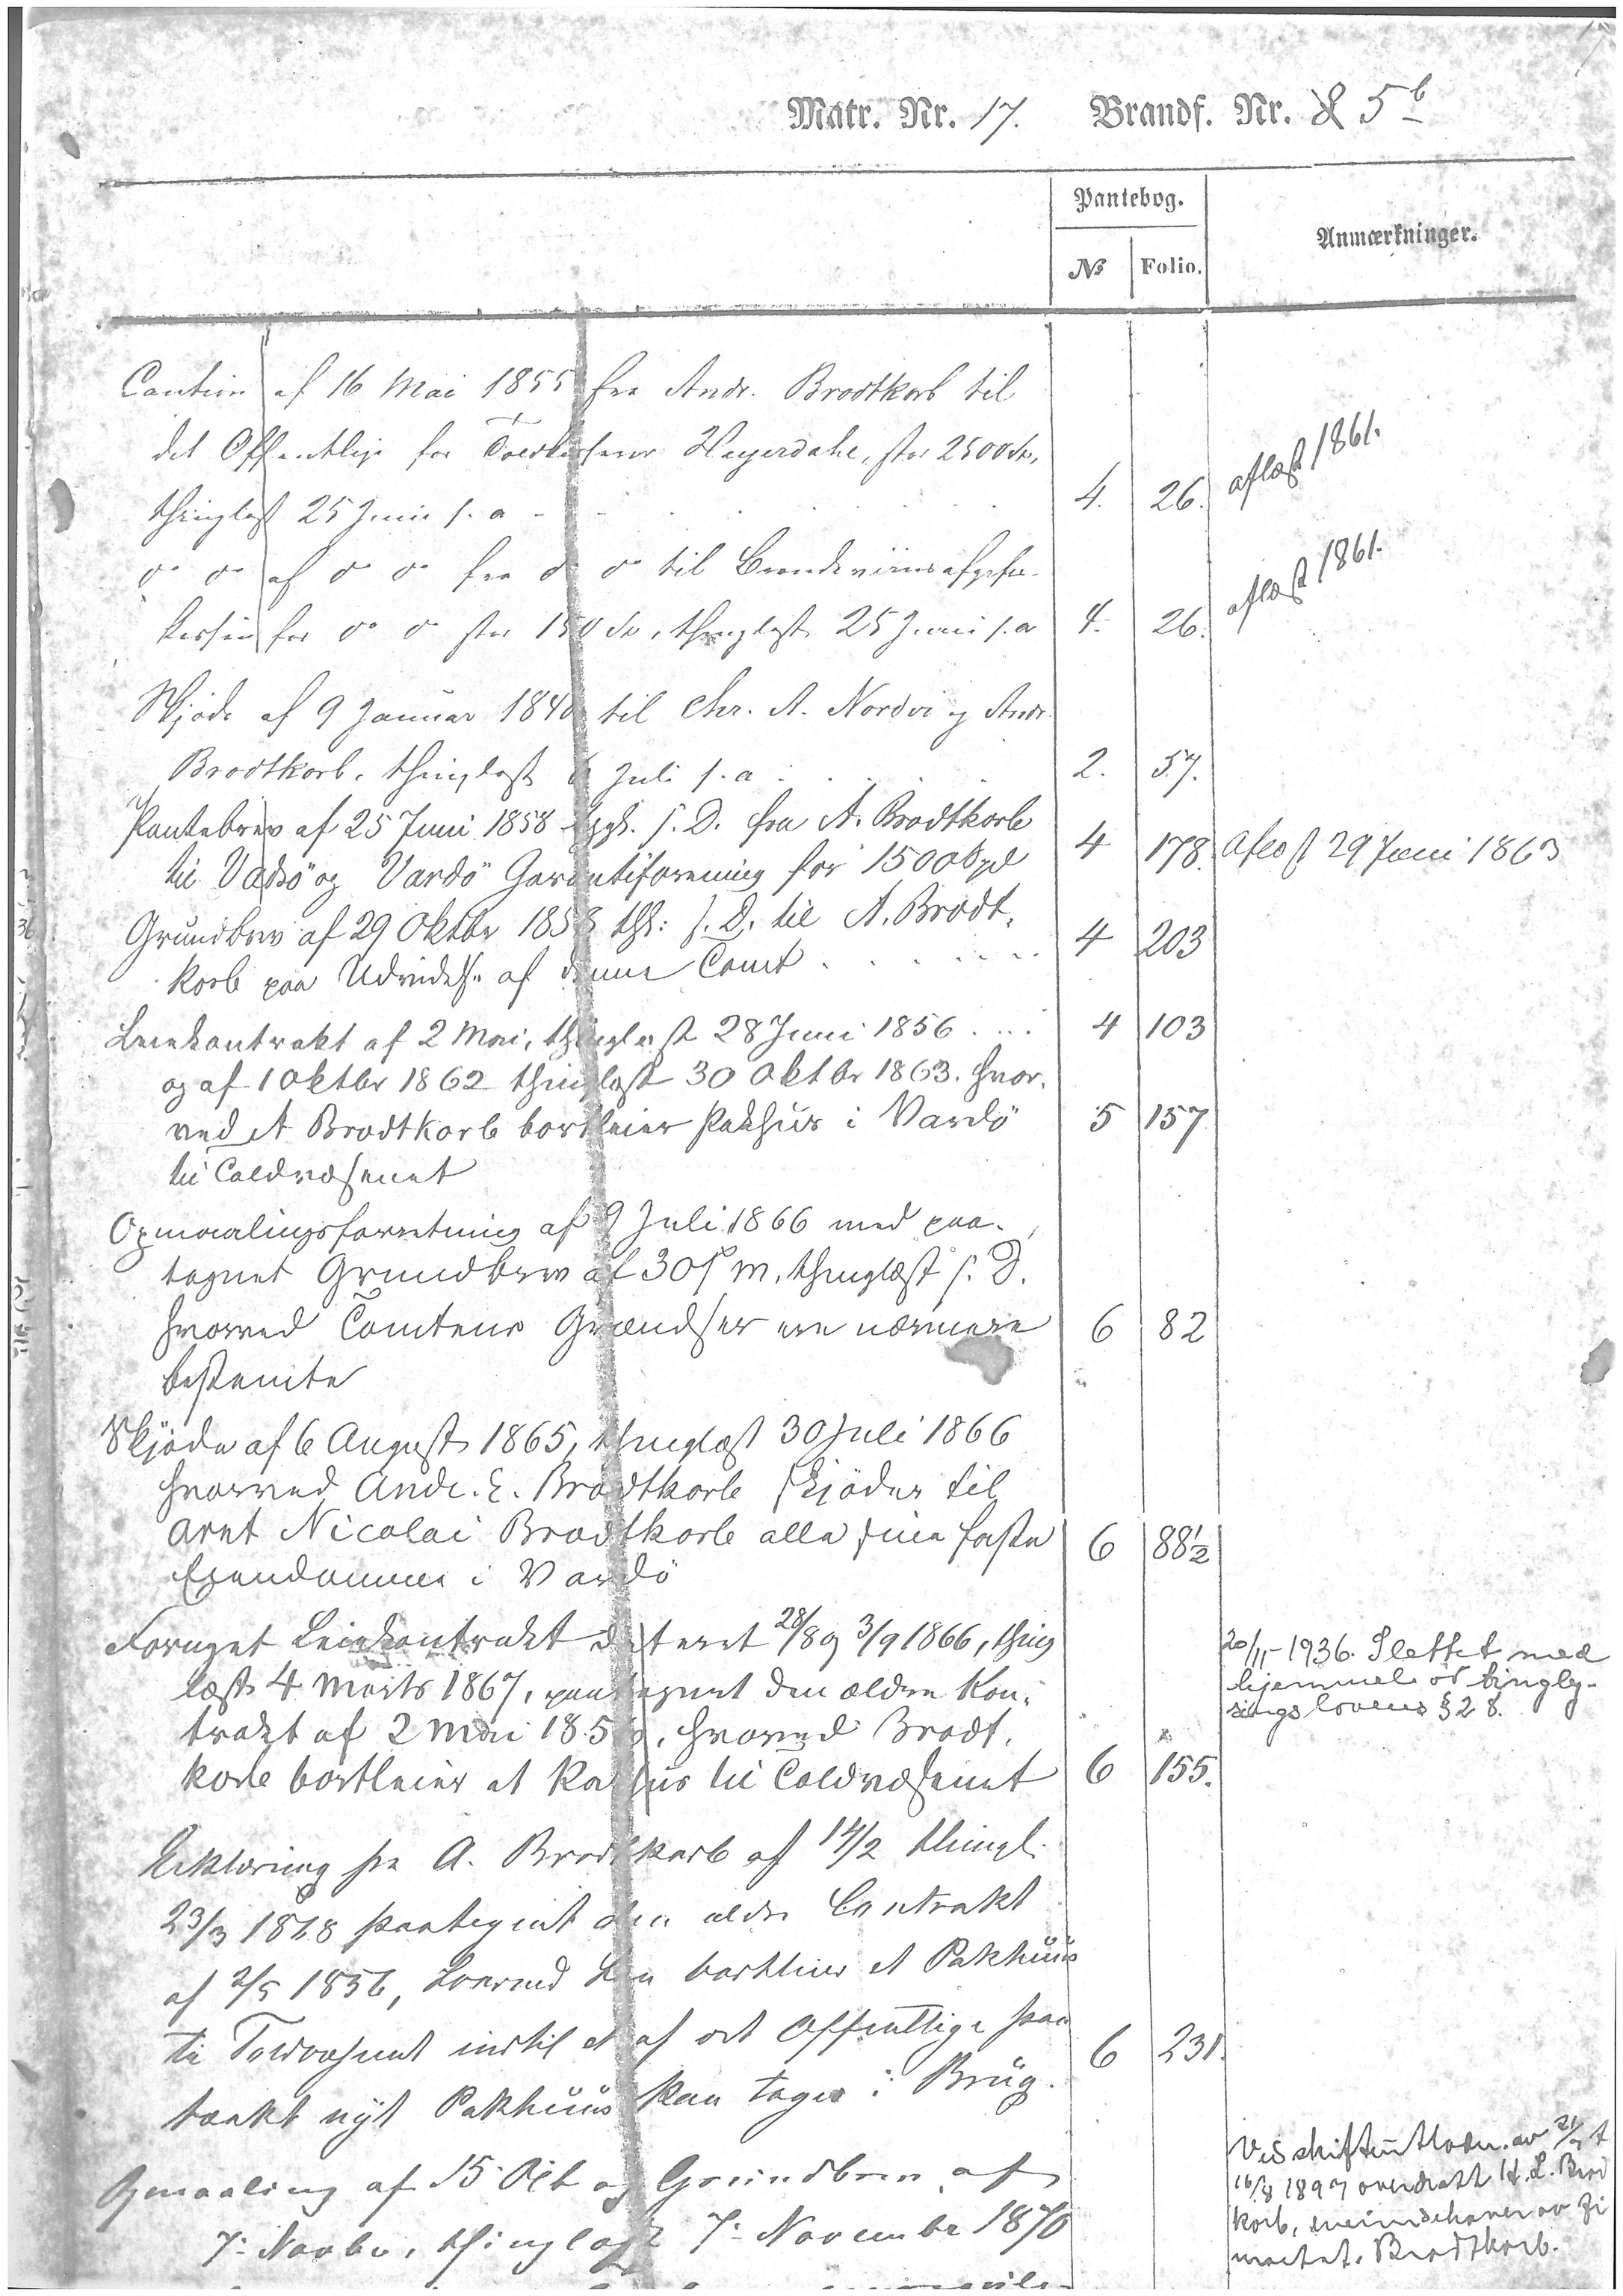 Matr. Nr. 17. Brandf. Nr. 5b
Pantebog.
No Folio. Anmærkninger.
Caution af 16 Mai 1855 fra Andr. Brodtkorb til
det Offentlige for Toldkasserer Heyerdahl, stor 2500 Sp.
thinglæst 25 Juni s. a - 4. 26. aflæst 1861.
do do af do do fra do do til Brændeviinsafgifts-
kassen for do do stor 150 Sp, thinglæst 25 Juni s. a 4. 26. aflæst 1861.
Skjøde af 9 Januar 1840 til Chr. A. Nordvi og Andr.
Brodtkorb, thinglæst 6 Juli s. a 2. 57.
Pantebrev af 25 Juni 1858 s. D. fra A. Brodtkorb
til Vadsö og Vardö Garantiforening for 1500 Spd 4 178. Aflæst 29 Juni 1863
Grundbrev af 29 Oktbr 1858 s. D. til A. Brodt-
korb paa Udvidelse af denne Tomt 4 203
Leiekontrakt af 2 Mai, thinglæst 28 Juni 1856 4 103
og af 1 Oktbr 1862 thinglæst 30 Oktbr 1863. hvor-
ved A Brodtkorb bortleier Pakhus i Vardö 5 157
til Toldvæsenet
Opmaalingsforretning af 9 Juli 1866 med paa-
tegnet Grundbrev af 30 s. m. thinglæst s. D.
hvorved Tomtens Grændser ere nærmere 6 82
bestemte
Skjöde af 6 August 1865, thinglæst 30 Juli 1866
hvorved Andr. E. Brodtkorb skjöder til
Aret Nicolai Brodtkorb alle sine faste 6 88½
Eiendomme i Vardö
Fornyet Leiekontrakt dateret 28/8 og 3/9 1866, thing
læst 4 Marts 1867, paategnet den ældre Kon-
trakt af 2 Mai 1856, hvorved Brodt-
korb bortleier et Pakhus til Toldvæsenet 6 155.
20/11-1936. Slettet med
hjemmel i tingly-
singslovens § 28.
Erklæring fra A. Brodtkorb af 14/2 thingl.
23/3 1868 paategnet den ældre Contrakt
af 2/5 1856, hvorved han bortleier et Pakhuus
til Toldvæsenet indtil et af det Offentlige paa
tænkt nyt Pakhuus kan tages i Brug. 6 231.
Opmaaling af 15 Okt og Grundbrev af
7. Novbr, thinglæst 7. November 1870
Ved skifteutlodn. av 21/7
16/8 1897 overdratt H. L. Brod
korb, eneindehaver av fi
maet A. Brodtkorb.